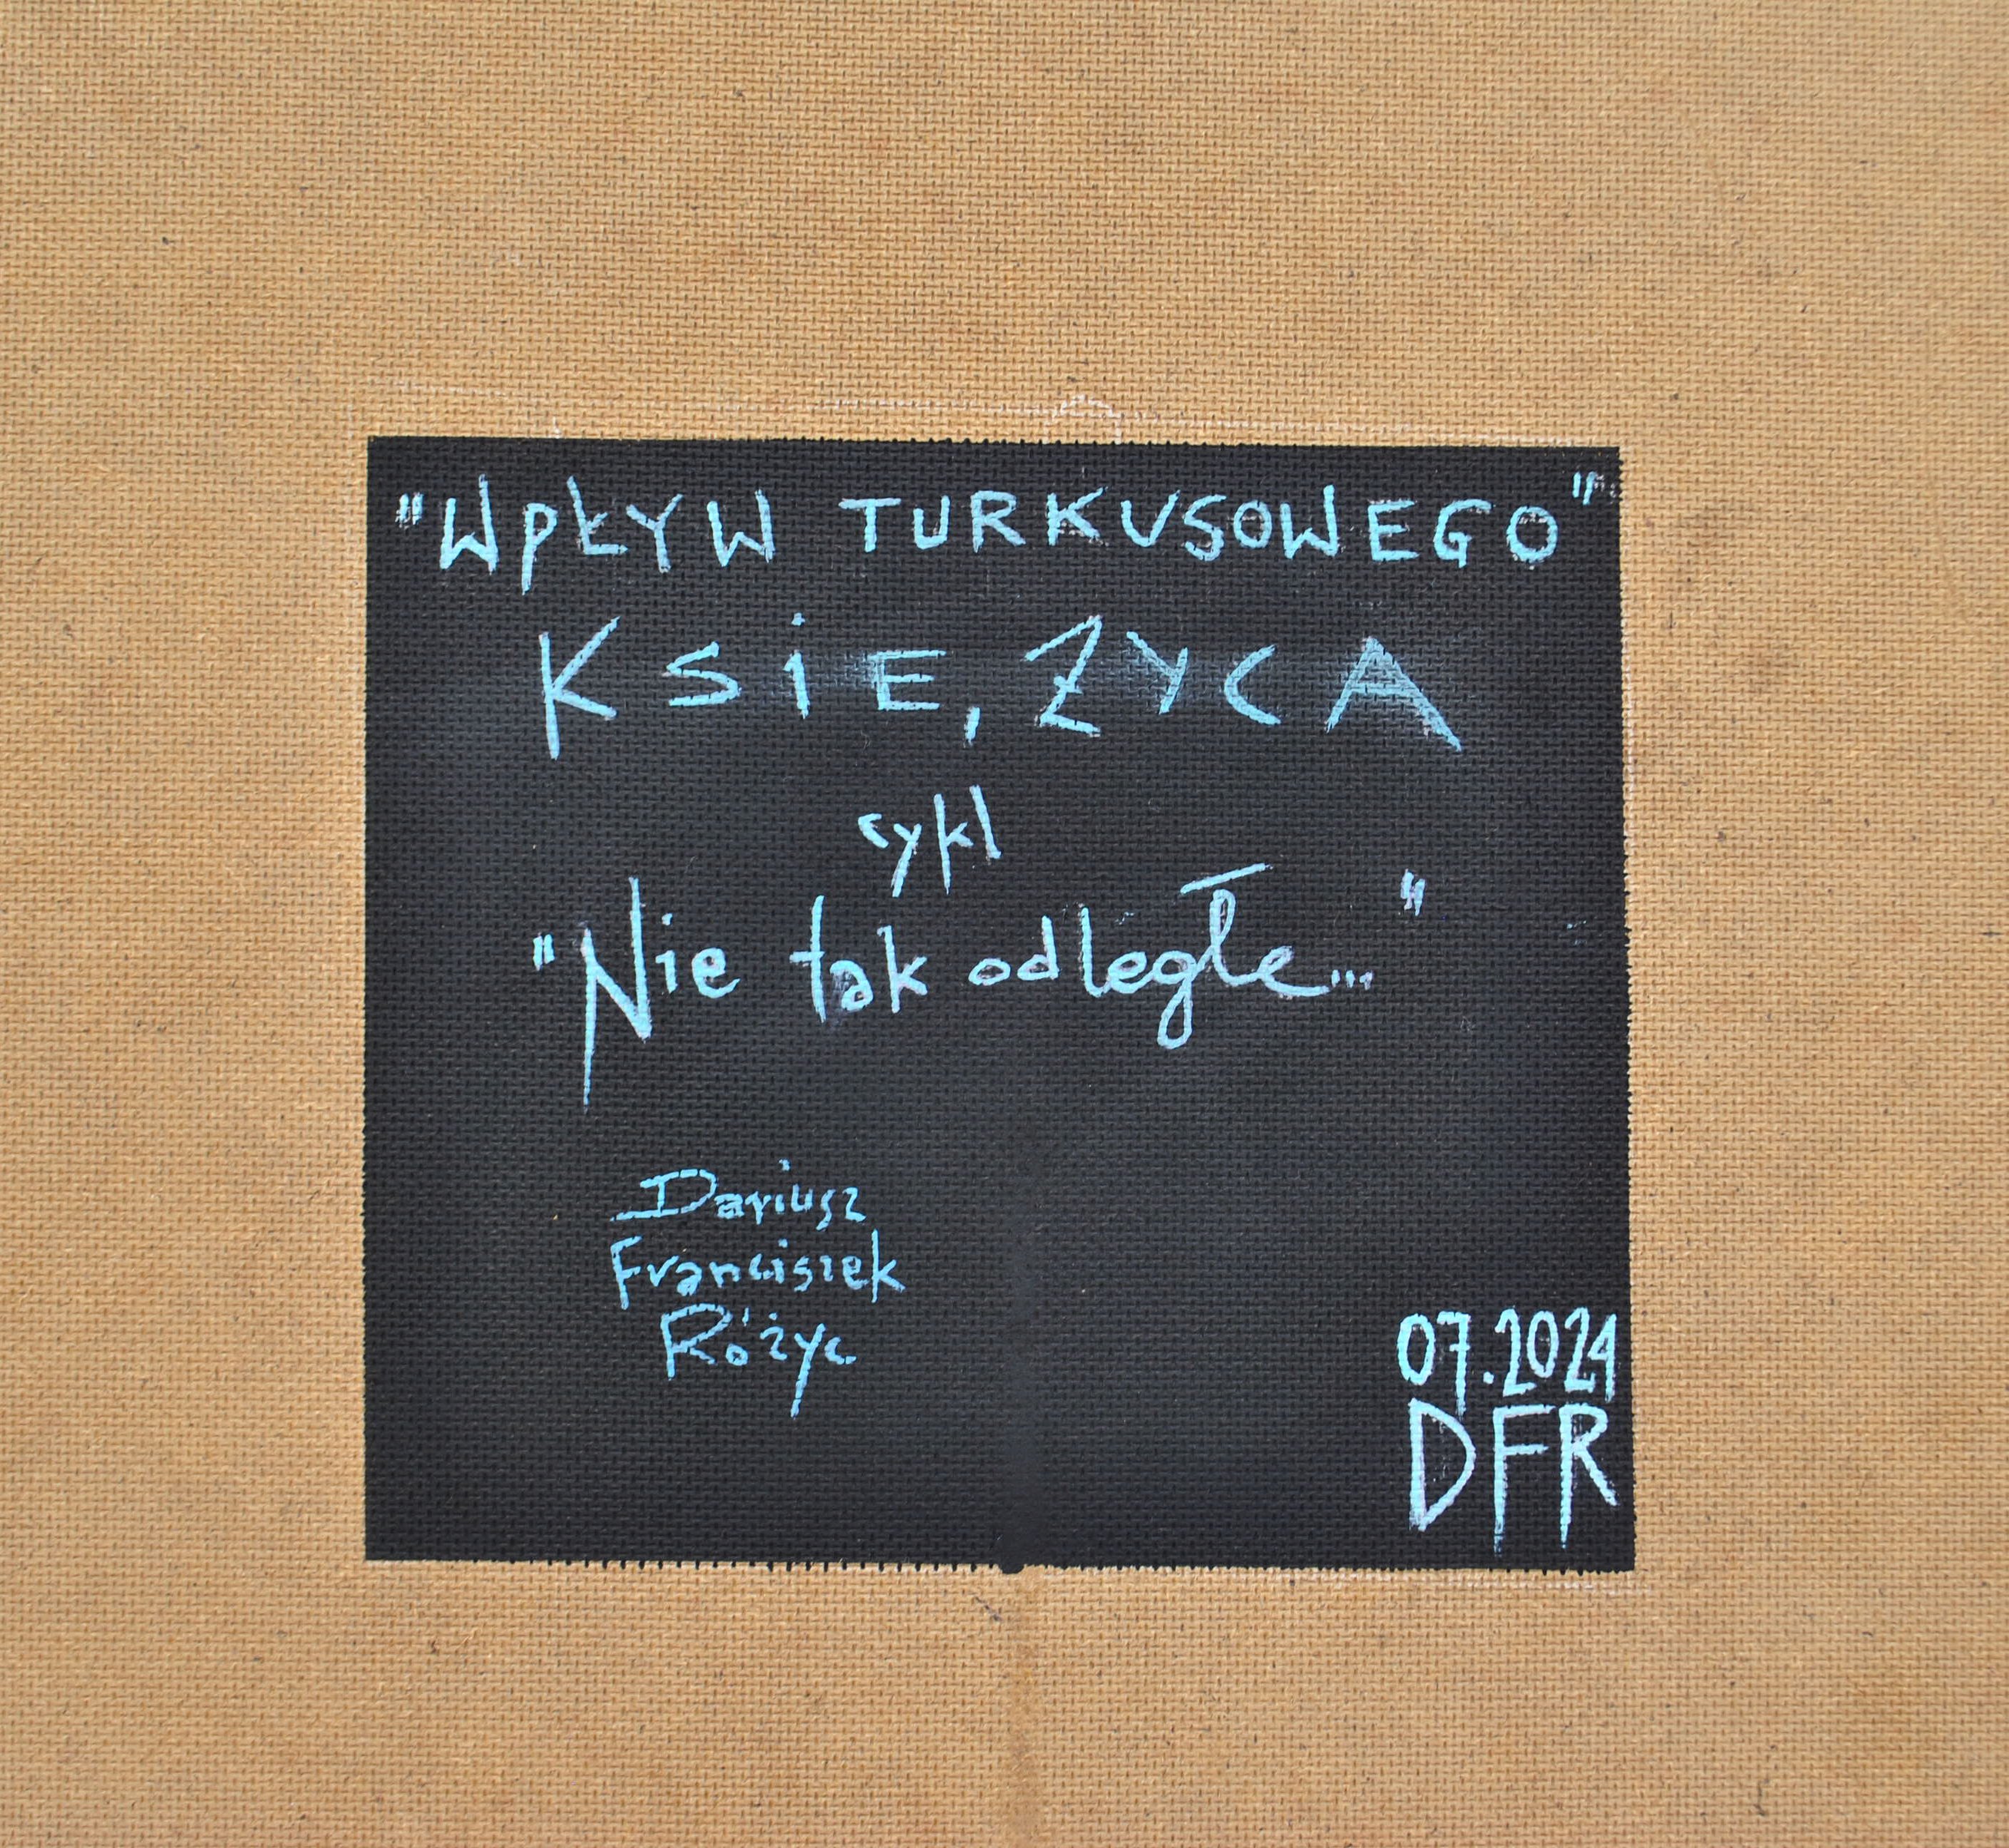 "WPŁYW TURKUSOWEGO"
KSiĘŻYCA
cykl
"Nie tak odległe..."
Dariusz
Franciszek
Różyc
07.2024
DFR